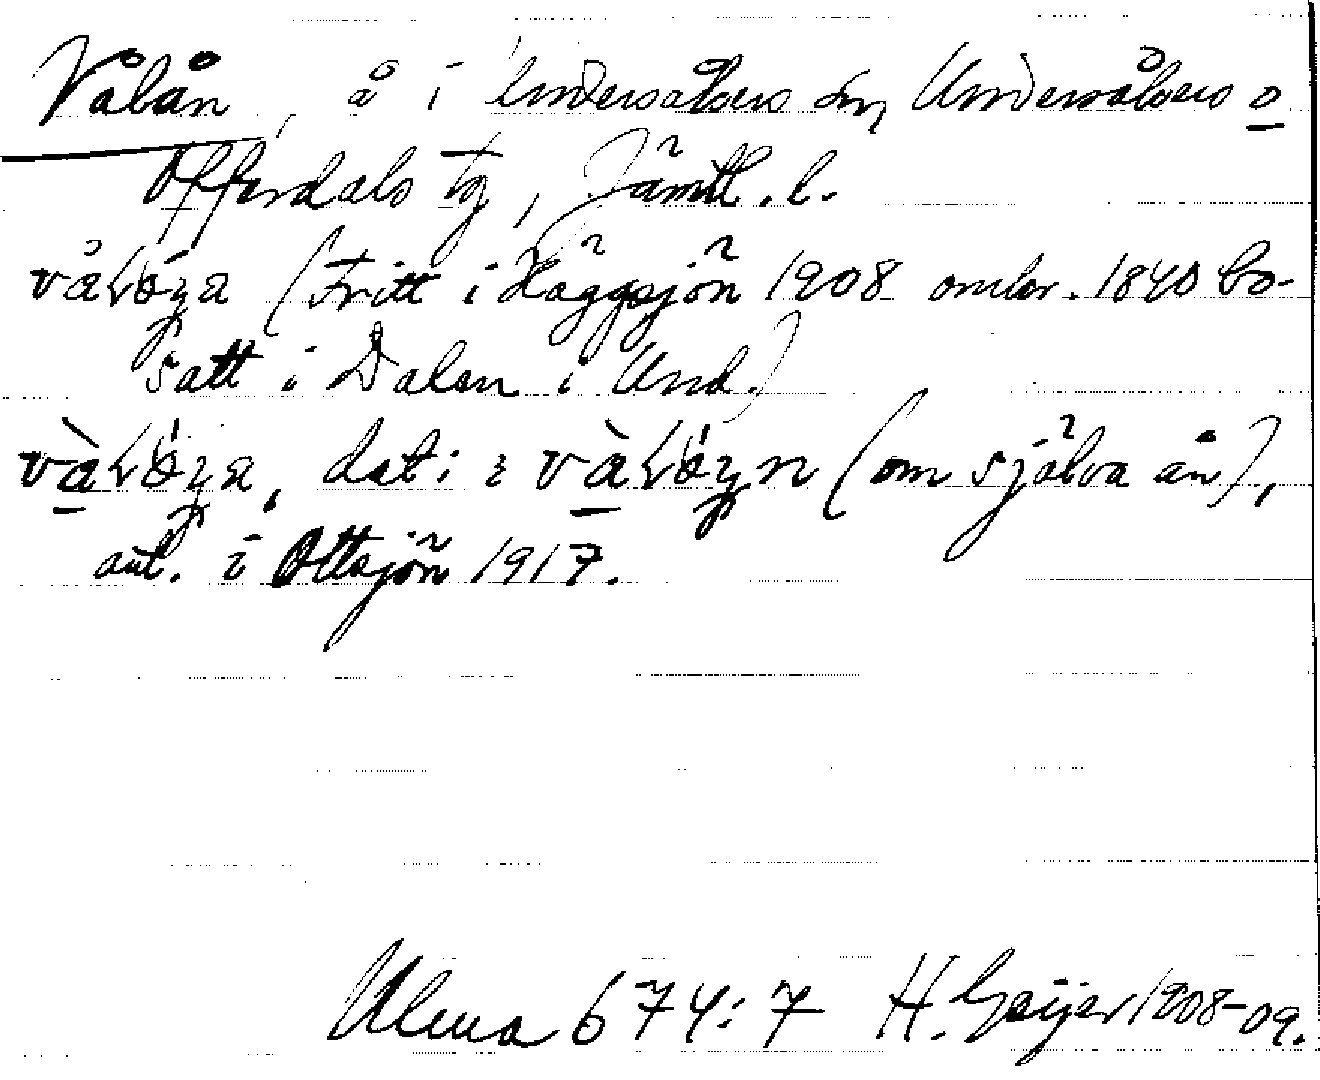 Vålån, å i Undersåkers sn, Undersåkers o
Offerdals tg, Jämtl. l.
(Fritt i Häggsjön 1908 omkr. 1840 bo-
satt i Dalen i Und.)
dat. i (om själva ån),
ant. i Ottsjön 1917.
Ulma 674:7 H. Geijer 1908-09.